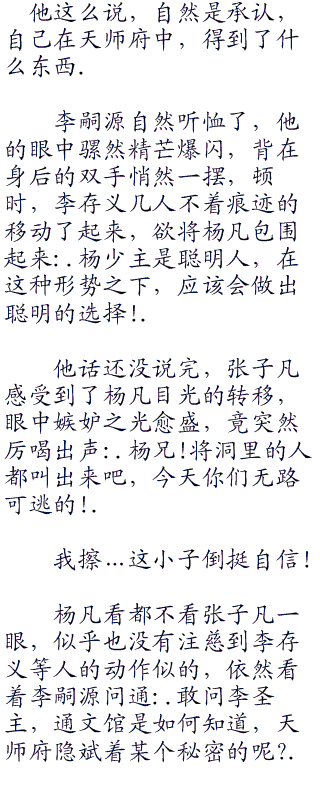 他这么说，自然是承认，
自己在天师府中，得到了什
么东西.
李嗣源自然听恤了，他
的眼中骡然精芒爆闪，背在
身后的双手悄然一摆，顿
时，李存义几人不着痕迹的
移动了起来，欲将杨凡包围
起来:.杨少主是聪明人，在
这种形势之下，应该会做出
聪明的选择!.
他话还没说完，张子凡
感受到了杨凡目光的转移，
眼中嫉妒之光愈盛，竟突然
厉喝出声:.杨兄!将洞里的人
都叫出来吧，今天你们无路
可逃的!.
我擦…这小子倒挺自信!
杨凡看都不看张子凡一
眼，似乎也没有注慈到李存
义等人的动作似的，依然看
着李嗣源问通:.敢问李圣
主，通文馆是如何知道，天
师府隐斌着某个秘密的呢?.